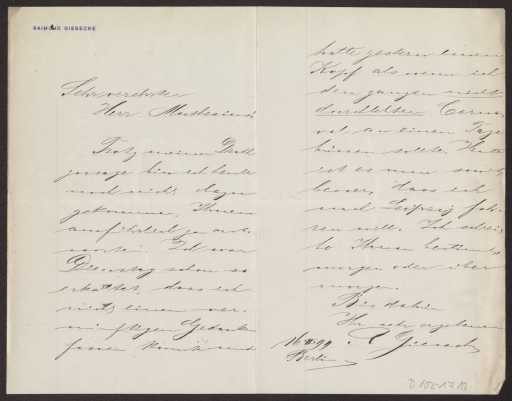 RAIMUND GIESECKE
Sehr verehrter
Herr
Trotz meiner
bin ich heute
noch nicht dazu
gekommen, Ihnen
ausführlich zu ant-
worten. Ich war
Dienstag schon so
erkältet, dass ich
nicht einen ver-
nünftigen Gedank
fassen konnte und
hatte gestern einen
Kopf als wenn ich
den ganzen nicht
durchlebten Carne-
val an einem Tage
büssen sollte. Heute
ist es mir
besser, dass ich
nach Leipzig fah-
ren will. Ich schrei-
be Ihnen bestimmt
morgen oder über
morgen.
Bis dahin
Ihr sehr ergebener
16 II 99
Berlin